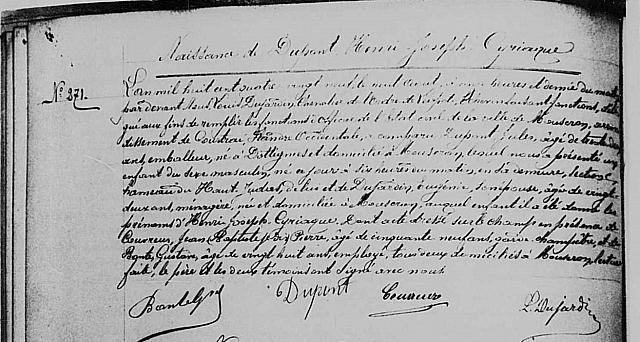 Naissance de Dupont Henri Joseph Cyriaque
N° 371.
L'an mil huit cent quatre vingt neuf le neuf août, à onze heures et demie du matin
par devant nous Louis Dujardin, Chevalier de l'ordre de Léopold, Echevin faisant fonctions, délé
gué aux fins de remplir les fonctions d'officier de l'Etat civil de la ville de Mouscron, arron
dissement de Courtrai, Flandre Occidentale, a comparu Dupont Jules, âgé de trente deux
ans, emballeur, né à Dottignies et domicilié à Mouscron, lequel nous a présenté un
enfant du sexe masculin, né ce jour à six heures du matin, en sa demeure, section
hameau du Haut Judas, de lui et de Dujardin Eugénie, son épouse, âgée de vingt
deux ans, ménagère, née et domiciliée à Mouscron, auquel enfant il a été donné les
prénoms d'Henri Joseph Cyriaque. Dont acte dressé sur le champ en présence de
Couvreur, Jean Baptiste Pierre, âgé de cinquante neuf ans, garde champêtre, et de
Bonte, Gustave, âgé de vingt huit ans, employé, tous deux domiciliés à Mouscron, lecture
faite, le père et les deux témoins ont signé avec nous.
Bonte G Dupont Couvreur L. Dujardin